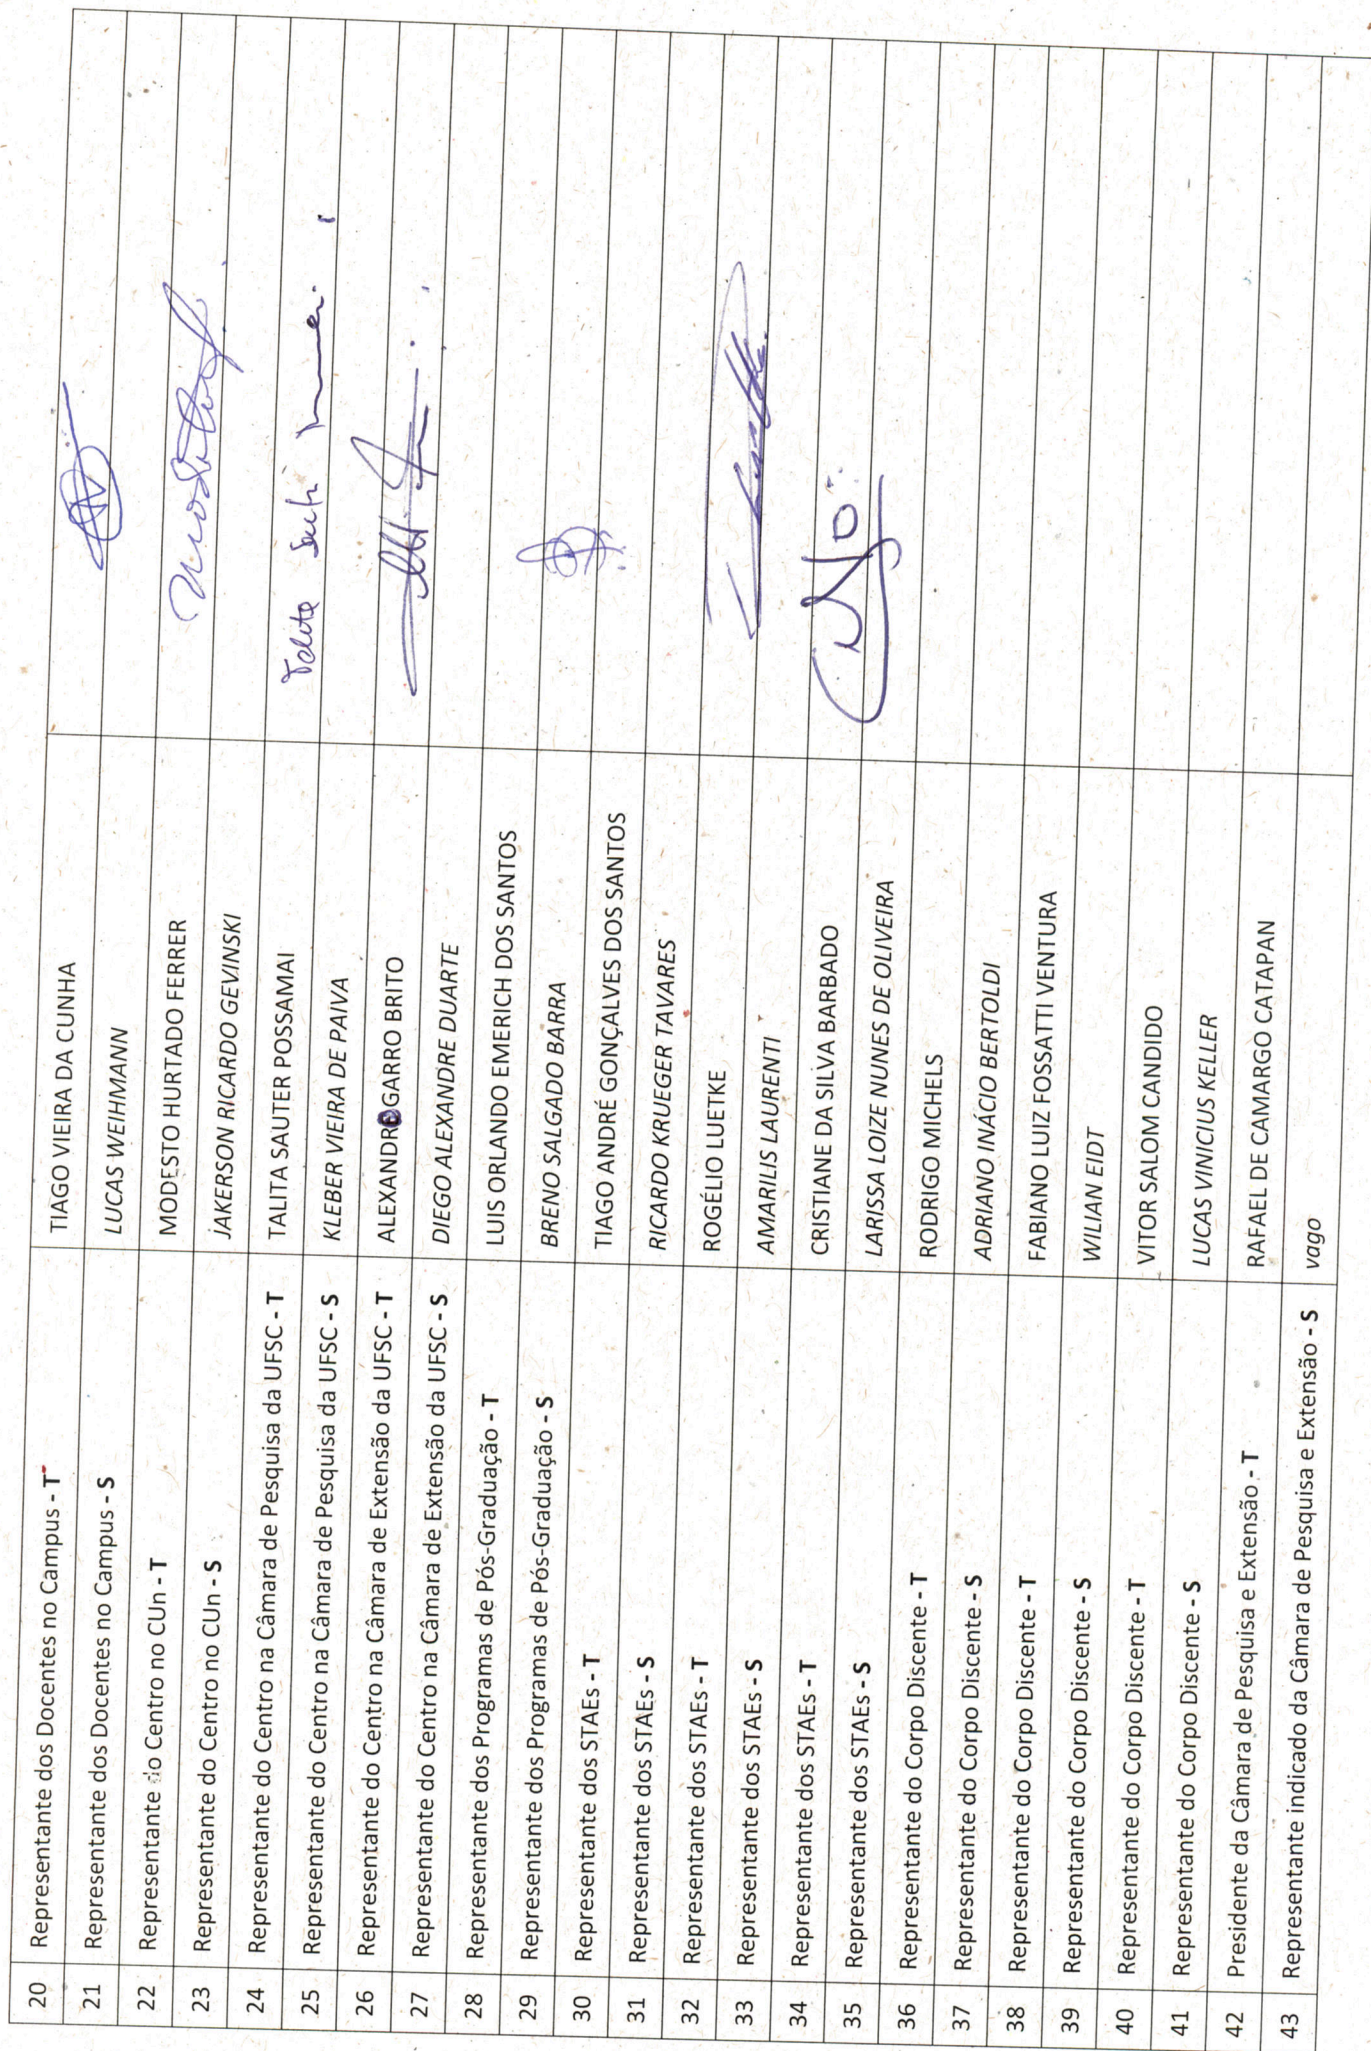 20 Representante dos Docentes no Campus - T TIAGO VIEIRA DA CUNHA
21 Representante dos Docentes no Campus - S LUCAS WEIHMANN
22 Representante do Centro no CUn - T MODESTO HURTADO FERRER
23 Representante do Centro no CUn - S JAKERSON RICARDO GEVINSKI
24 Representante do Centro na Câmara de Pesquisa da UFSC - T TALITA SAUTER POSSAMAI
25 Representante do Centro na Câmara de Pesquisa da UFSC - S KLEBER VIEIRA DE PAIVA
26 Representante do Centro na Câmara de Extensão da UFSC - T ALEXANDRO GARRO BRITO
27 Representante do Centro na Câmara de Extensão da UFSC - S DIEGO ALEXANDRE DUARTE
28 Representante dos Programas de Pós-Graduação - T LUIS ORLANDO EMERICH DOS SANTOS
29 Representante dos Programas de Pós-Graduação - S BRENO SALGADO BARRA
30 Representante dos STAEs - T TIAGO ANDRÉ GONÇALVES DOS SANTOS
31 Representante dos STAEs - S RICARDO KRUEGER TAVARES
32 Representante dos STAEs - T ROGÉLIO LUETKE
33 Representante dos STAEs - S AMARILIS LAURENTI
34 Representante dos STAEs - T CRISTIANE DA SILVA BARBADO
35 Representante dos STAEs - S LARISSA LOIZE NUNES DE OLIVEIRA
36 Representante do Corpo Discente - T RODRIGO MICHELS
37 Representante do Corpo Discente - S ADRIANO INÁCIO BERTOLDI
38 Representante do Corpo Discente - T FABIANO LUIZ FOSSATTI VENTURA
39 Representante do Corpo Discente - S WILIAN EIDT
40 Representante do Corpo Discente - T VITOR SALOM CANDIDO
41 Representante do Corpo Discente - S LUCAS VINICIUS KELLER
42 Presidente da Câmara de Pesquisa e Extensão - T RAFAEL DE CAMARGO CATAPAN
43 Representante indicado da Câmara de Pesquisa e Extensão - S vago